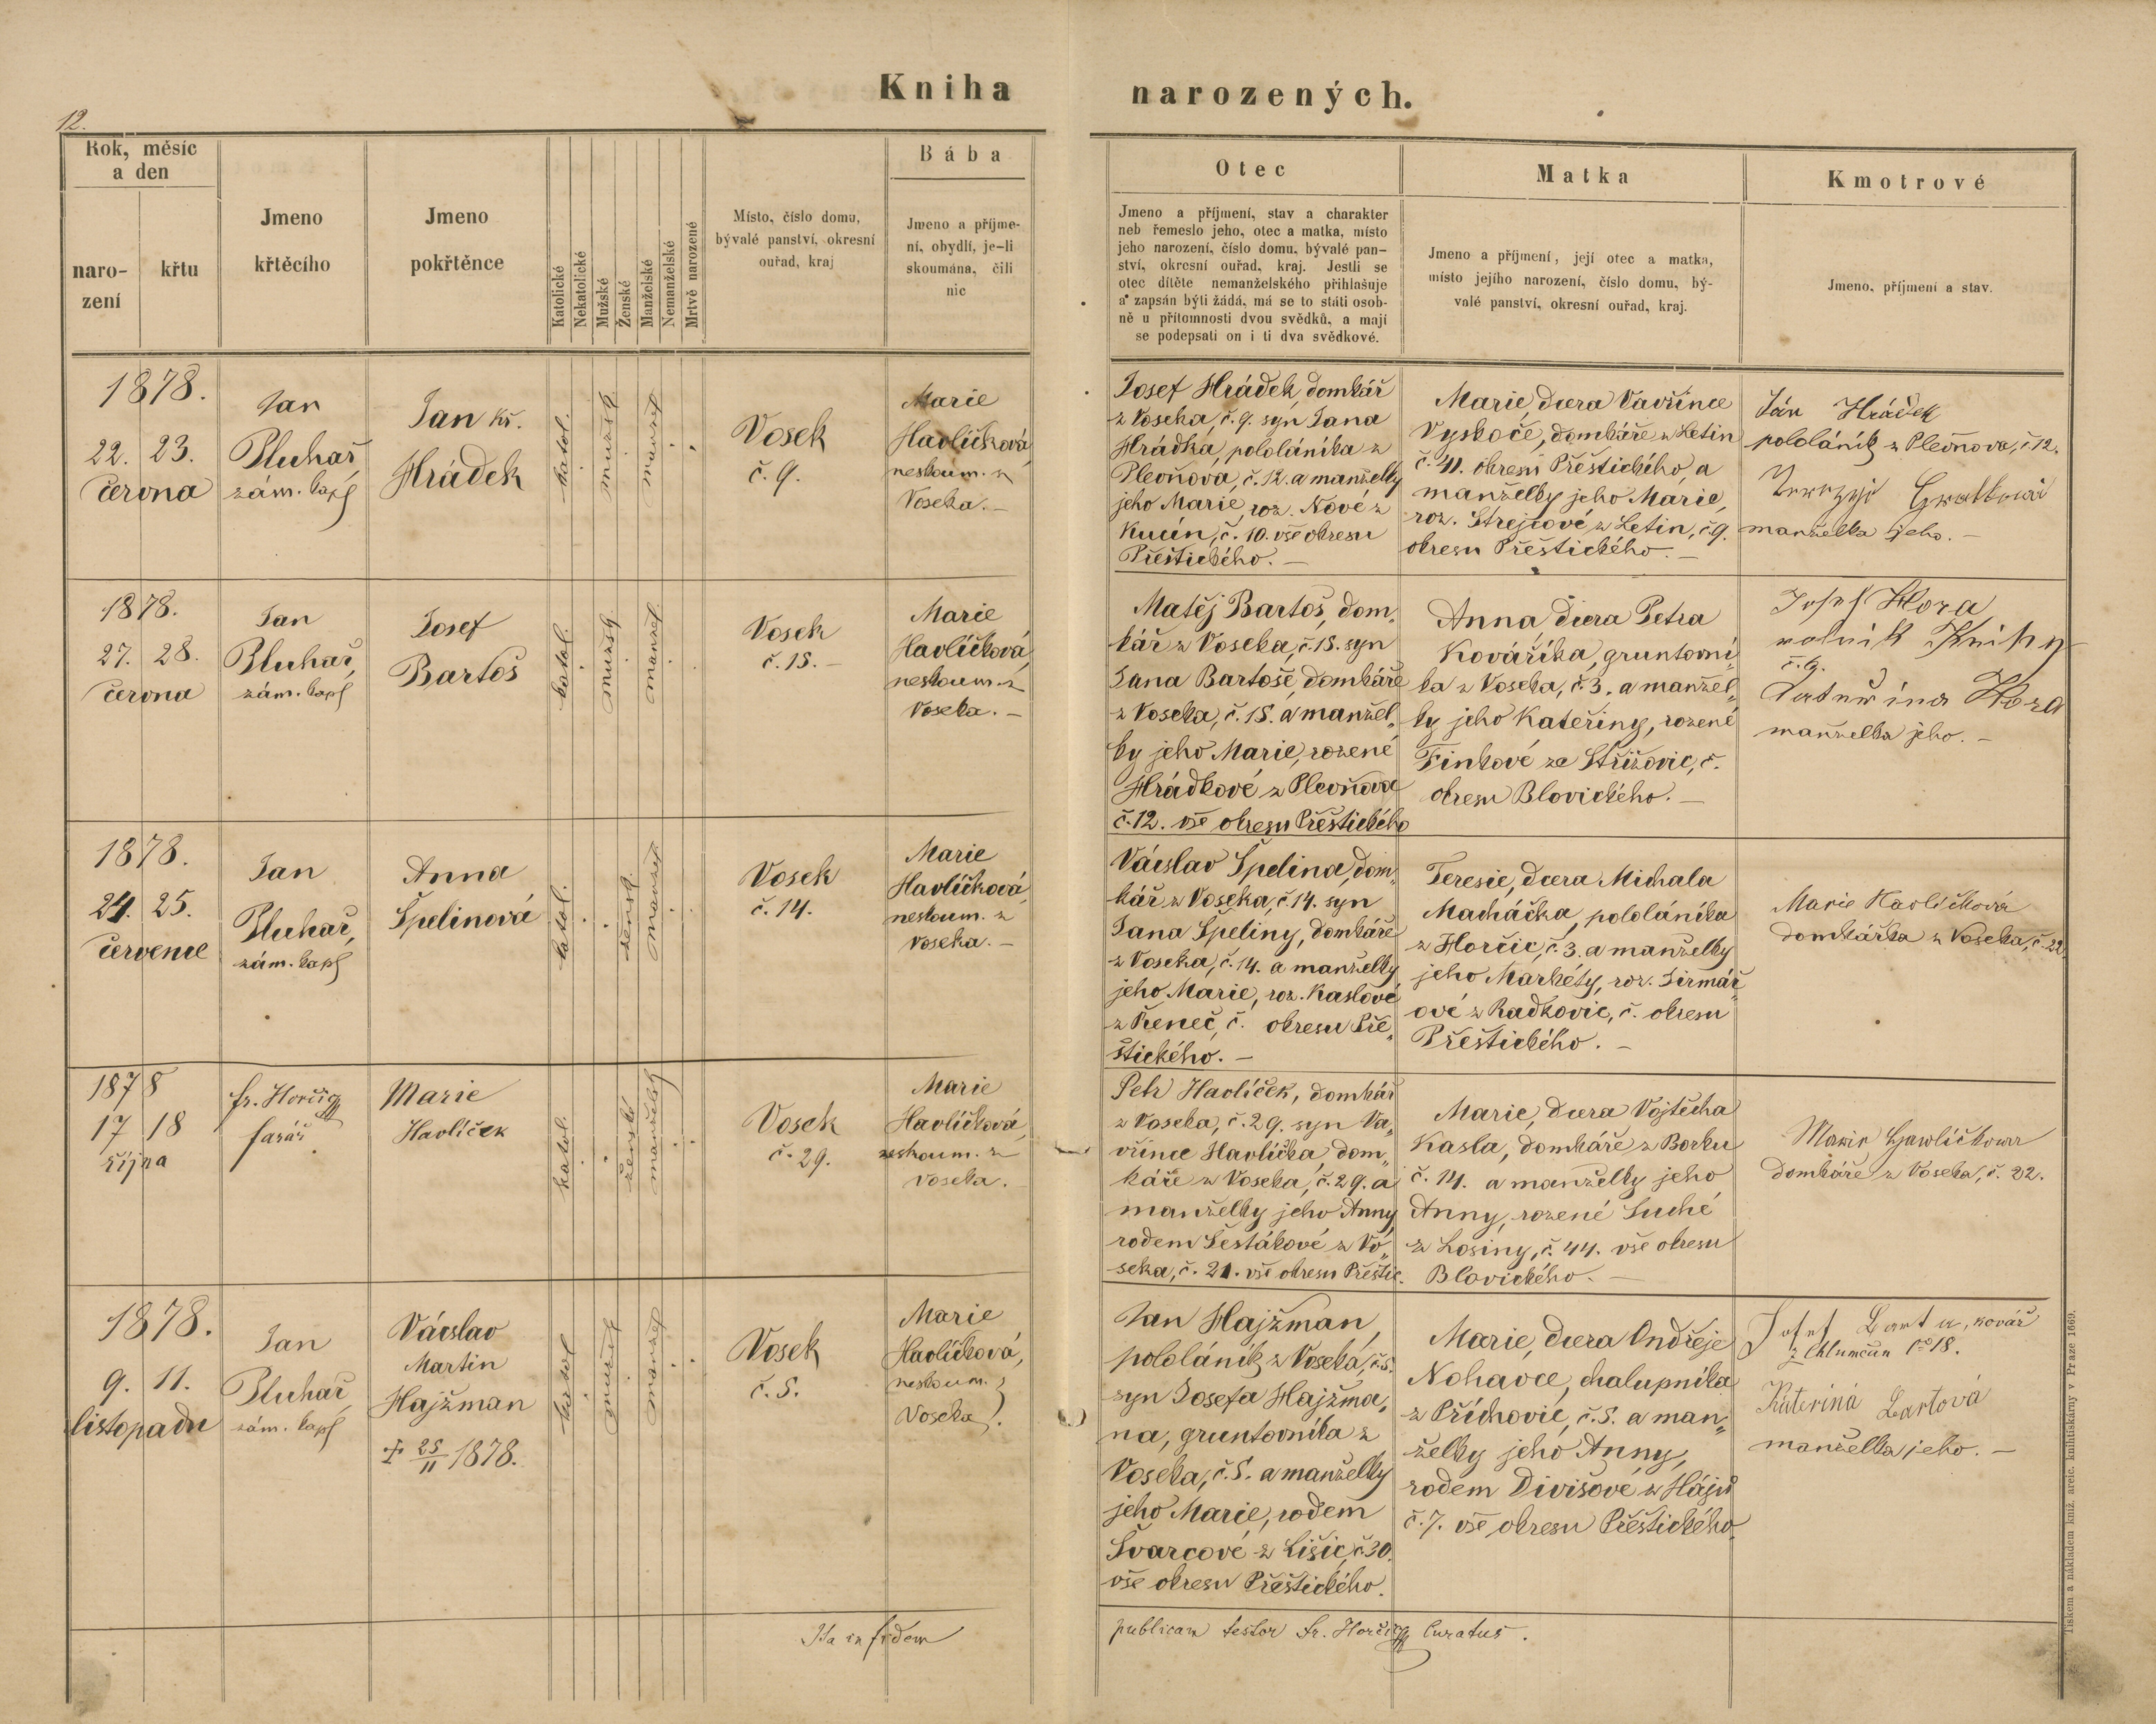 Kniha narozených.
12.
Rok, měsíc
a den
naro-
zení
křtu
Jmeno
křtěcího
Jmeno
pokřtěnce
Katolické
Nekatolické
Mužské
Ženské
Manželské
Nemanželské
Mrtvě narozené
Místo, číslo domu,
bývalé panství, okresní
ouřad, kraj
Bába
Jmeno a příjme-
ní, obydlí, je-li
skoumána, čili
nic
Otec
Jmeno a příjmení, stav a charakter
neb řemeslo jeho, otec a matka, místo
jeho narození, číslo domu, bývalé pan-
ství, okresní ouřad, kraj. Jestli se
otec dítěte nemanželského přihlašuje
a zapsán býti žádá, má se to státi osob-
ně u přítomnosti dvou svědků, a mají
se podepsati on i ti dva svědkové.
Matka
Jmeno a příjmení, její otec a matka,
místo jejího narození, číslo domu, bý-
valé panství, okresní ouřad, kraj.
Kmotrové
Jmeno, příjmení a stav.
1878.
22. 23.
června
Jan
Pluhař
zám. kapl
Jan Kř.
Hrádek
katol.
mužsk.
manžel
Vosek
č. 9.
Marie
Havlíčková
neskoum. z
Voseka. –
Josef Hrádek, domkář
z Voseka, č. 9. syn Jana
Hrádka, pololáníka z
Plevňova, č. 12. a manželky
jeho Marie, roz. Nové z
Kucín, č. 10. vše okresu
Přeštického. –
Marie, dcera Vavřince
Vyskoče, domkáře z Letin
č. 41. okresu Přeštického, a
manželky jeho Marie,
roz. Strejcové z Letin, č. 9.
okresu Přeštického. –
Ján Hrádek
pololáník z Plevňova, č. 12.
manželka jeho. –
1878.
27. 28.
června
Jan
Pluhař,
zám. kapl
Josef
Bartoš
katol.
mužsk.
manžel.
Vosek
č. 15. –
Marie
Havlíčková,
neskoum. z
Voseka. –
Matěj Bartoš, dom„
kář z Voseka, č. 15. syn
Jana Bartoše, domkáře
z Voseka, č. 15. a manžel„
ky jeho Marie, rozené
Hrádkové z Plevňova
č. 12. vše okresu Přeštického
Anna dcera Petra
Kováříka, gruntovní
ka z Voseka, č. 3. a manžel„
ky jeho Kateřiny, rozené
Finkové ze Střížovic, č.
okresu Blovického. –
Josef Hora
rolník Knihy
č. 9.
Kateřina Hora
manželka jeho. –
1878.
24. 25.
července
Jan
Pluhař,
zám. kapl
Anna
Špelinová
katol.
žensk.
manžel
Vosek
č. 14.
Marie
Havlíčková,
neskoum. z
Voseka. –
Václav Špelina, dom„
kář z Voseka, č. 14. syn
Jana Špeliny, domkáře
z Voseka, č. 14. a manželky
jeho Marie, roz. Kaslové
z Řeneč, č. okresu Pře„
štického. –
Teresie, dcera Michala
Macháčka, pololáníka
z Horčic, č. 3. a manželky
jeho Markéty, roz. Jirmář„
ové z Radkovic, č. okresu
Přeštického. –
Marie Havlíčková
domkářka z Voseka, č. 22.
1878
17 18
října
fr. Horčig
farář
Marie
Havlíček
katol.
ženské
manželsk
Vosek
č. 29.
Marie
Havlíčková,
neskoum. z
Voseka.
Petr Havlíček, domkář
z Voseka, č. 29. syn Va„
vřince Havlíčka, dom„
káře z Voseka, č. 29. a
manželky jeho Anny
rodem Šestákové z Vo„
seka, č. 21. vše okresu Přeštic.
Marie, dcera Vojtěcha
Kasla, domkáře z Borku
č. 14. a manželky jeho
Anny, rozené Suché
z Losiny, č. 44. vše okresu
Blovického. –
Marie Hawlíčkowa
domkáře z Voseka, č. 22.
1878.
9. 11.
listopadu
Jan
Pluhař,
zám. kapl
Václav
Martin
Hajžman
† 25/11 1878.
katol
mužsk
manžel
Vosek
č. 5.
Marie
Havlíčková,
neskoum.
Voseka.
Jan Hajžman,
pololáník z Voseka, č. 5.
syn Josefa Hajžma„
na, gruntovníka z
Voseka, č. 5. a manželky
jeho Marie, rodem
Švarcové z Lišic, č. 30.
vše okresu Přeštického.
Marie, dcera Ondřeje
Nohavce, chalupníka
z Příchovic, č. 5. a man„
želky jeho Anny,
rodem Divišové z Hájů
č. 7. vše okresu Přeštického.
Josef Barta, kovář
z Chlumčan No 18.
Kateřina Bartová
manželka jeho. –
Ita in fidem publicam testor Fr. Horčig Curatus.
Tiskem a nákladem kníž. arcib. knihtiskárny v Praze 1669.